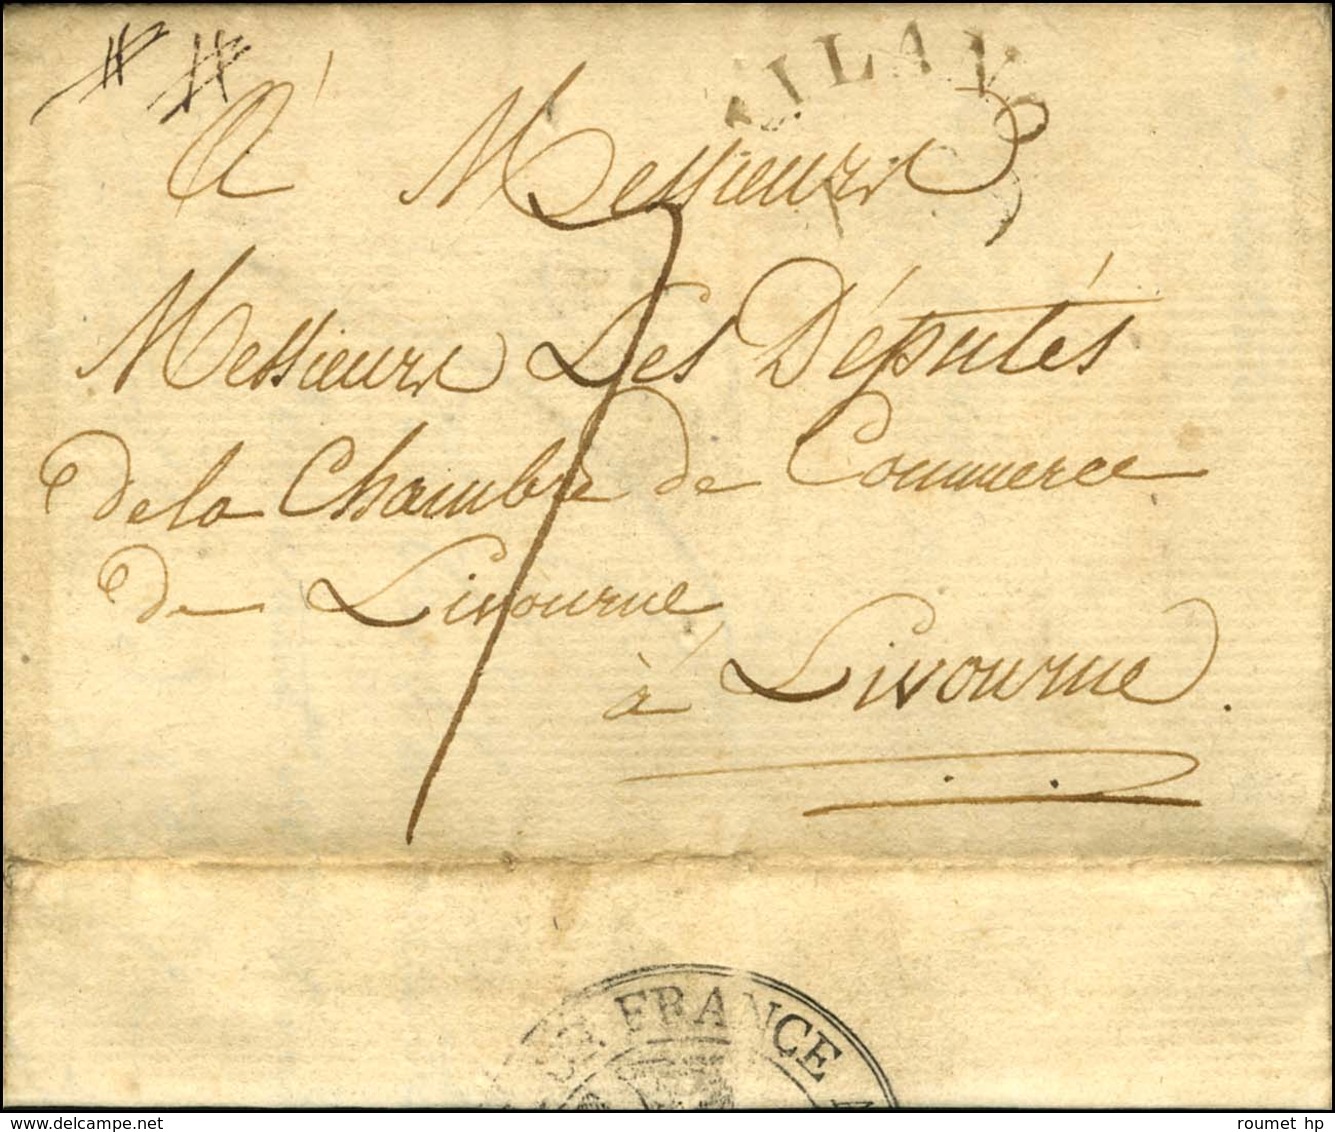 MILANO
A Messieurs
Messieurs Les Députés
de la Chambre de Commerce
de Livourne
à Livourne.
7
FRANCE
roumet hp